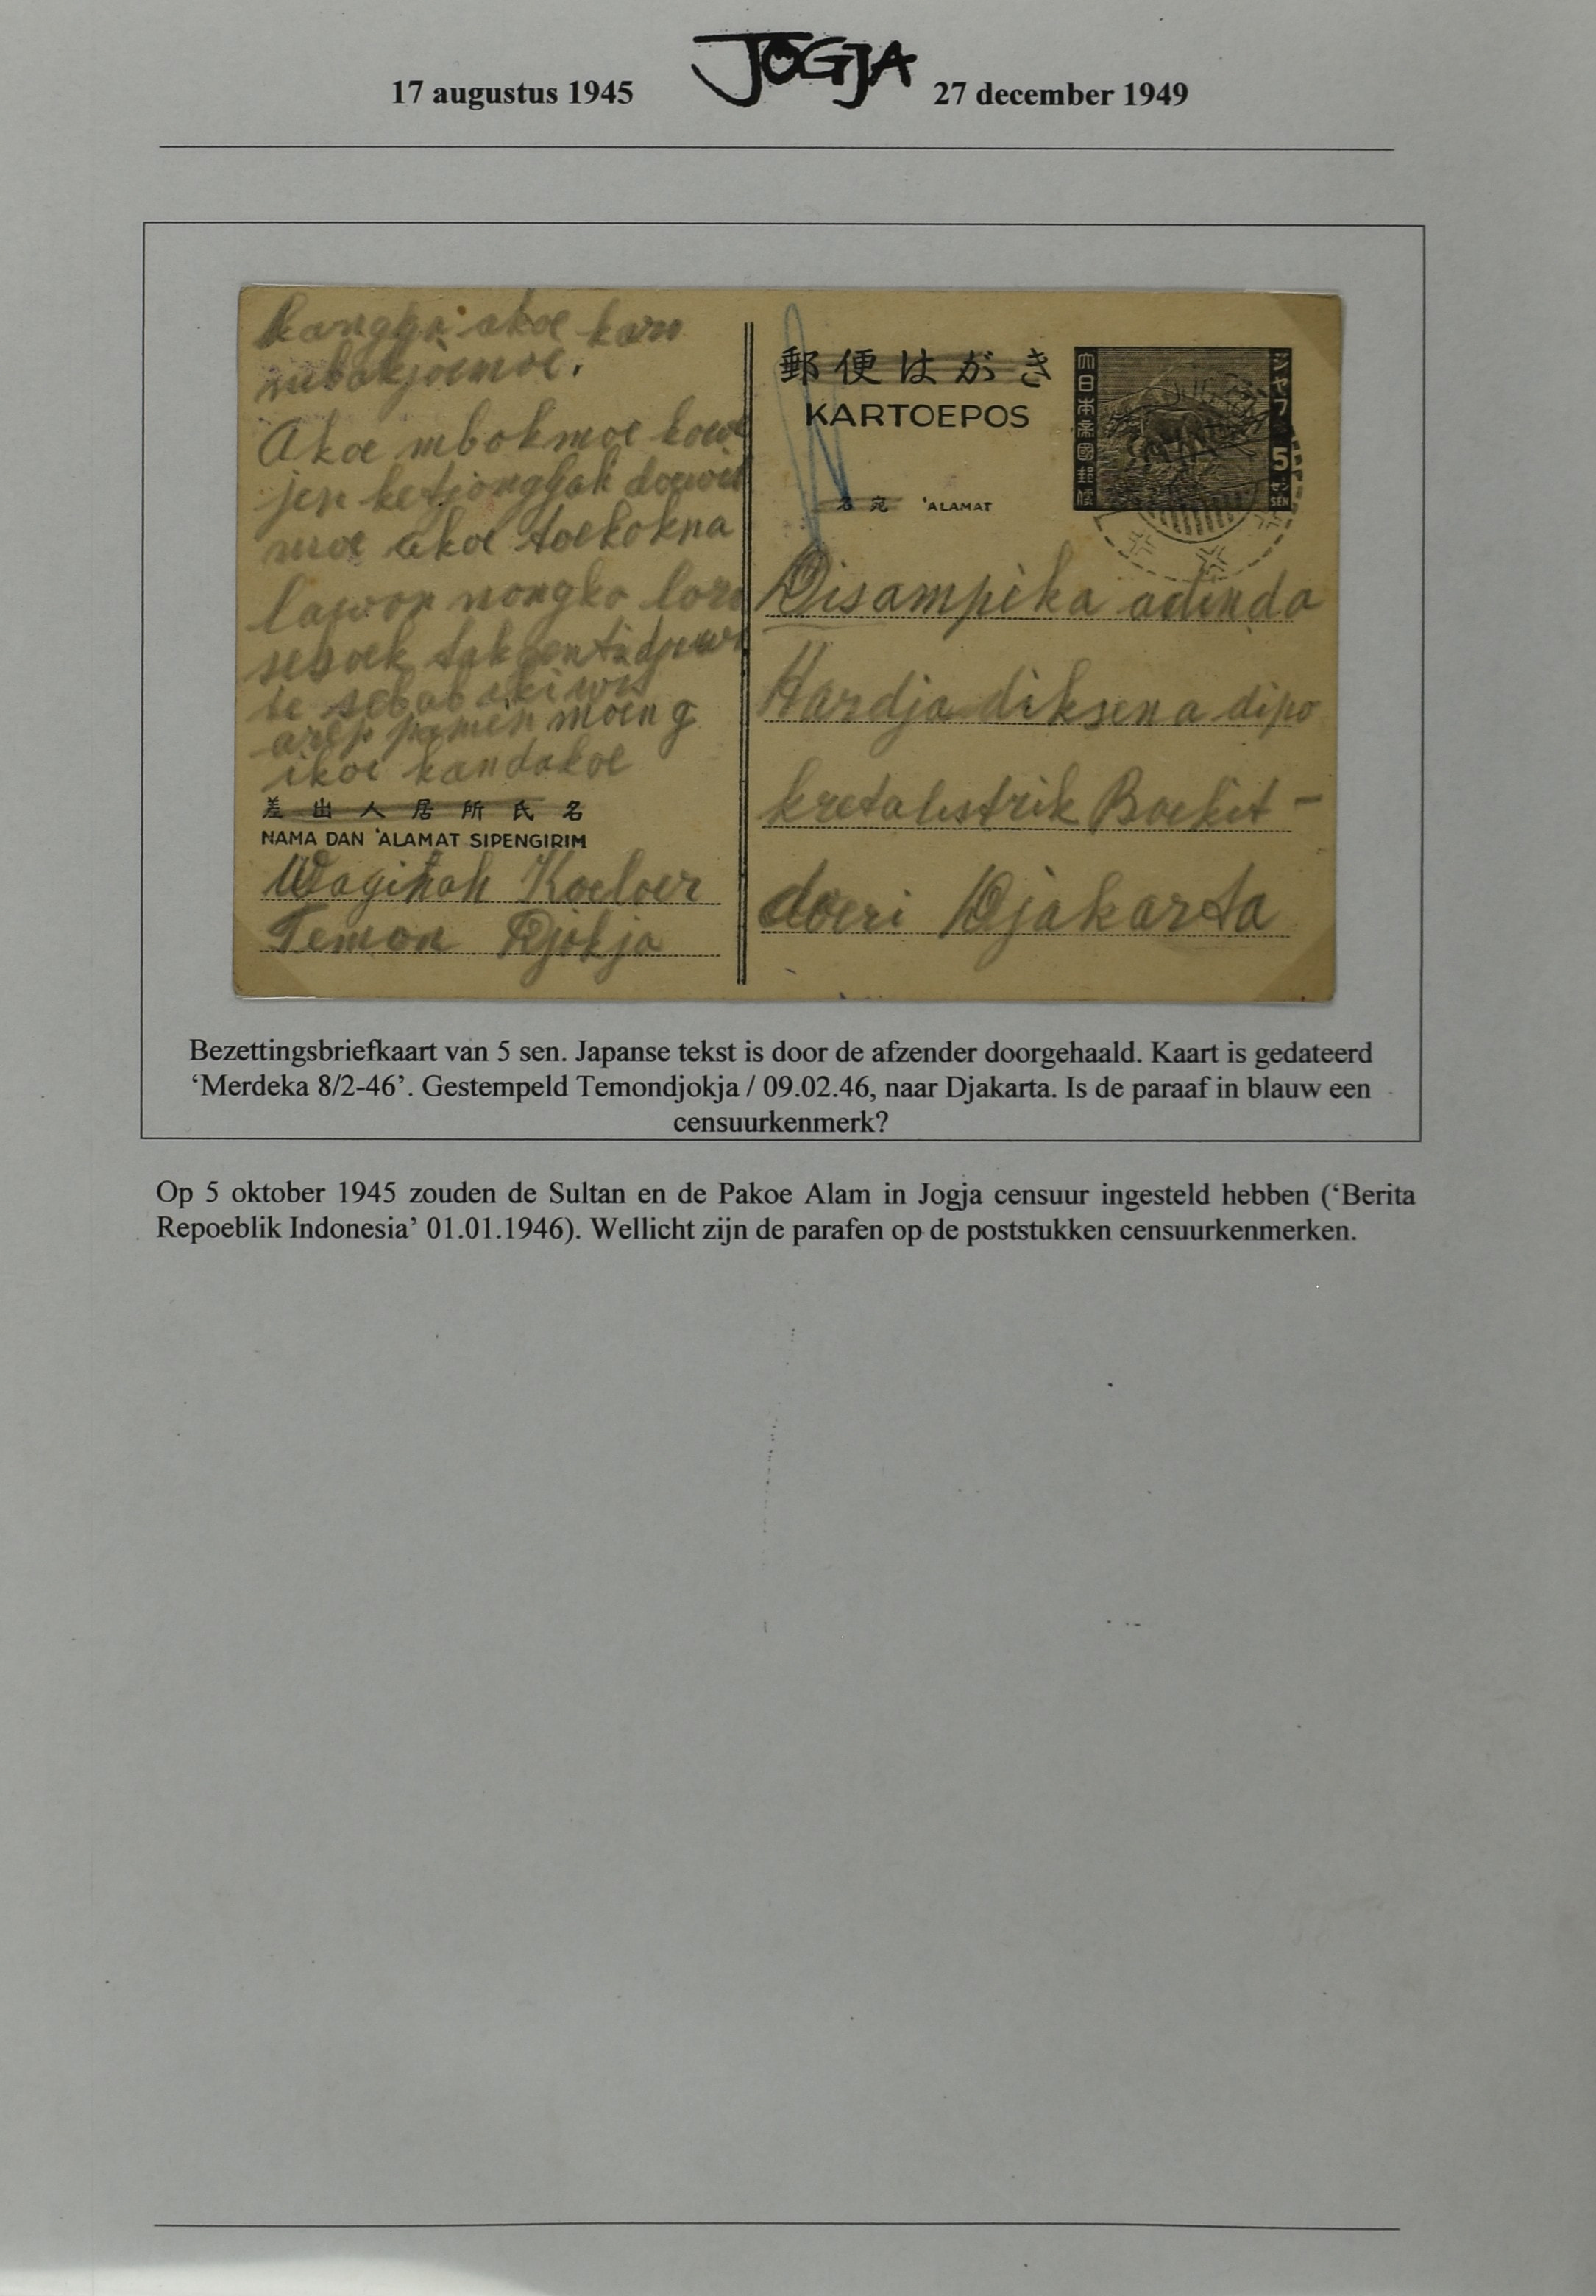 JOGJA
17 augustus 1945 27 december 1949
kanggo akoe karo
mbakjoemoe.
Akoe mbokmoe kowe
jen ketjonggah doewit
moe akoe toekokna
lawon nongko loro
sesoek tak
be sebab iki wis
arep panen moeng
ikoe kandakoe
差出人居所氏名
NAMA DAN 'ALAMAT SIPENGIRIM
Waginah Koeloer
Temon Djokja
郵便はがき
KARTOEPOS
名宛 'ALAMAT
大日本帝國郵便
ジャワ
5
セン
SEN
Disampika adinda
Hardja diksena dipo
kretalistrik Boekit-
doeri Djakarta
Bezettingsbriefkaart van 5 sen. Japanse tekst is door de afzender doorgehaald. Kaart is gedateerd
‘Merdeka 8/2-46’. Gestempeld Temondjokja / 09.02.46, naar Djakarta. Is de paraaf in blauw een
censuurkenmerk?
Op 5 oktober 1945 zouden de Sultan en de Pakoe Alam in Jogja censuur ingesteld hebben (‘Berita
Repoeblik Indonesia’ 01.01.1946). Wellicht zijn de parafen op de poststukken censuurkenmerken.